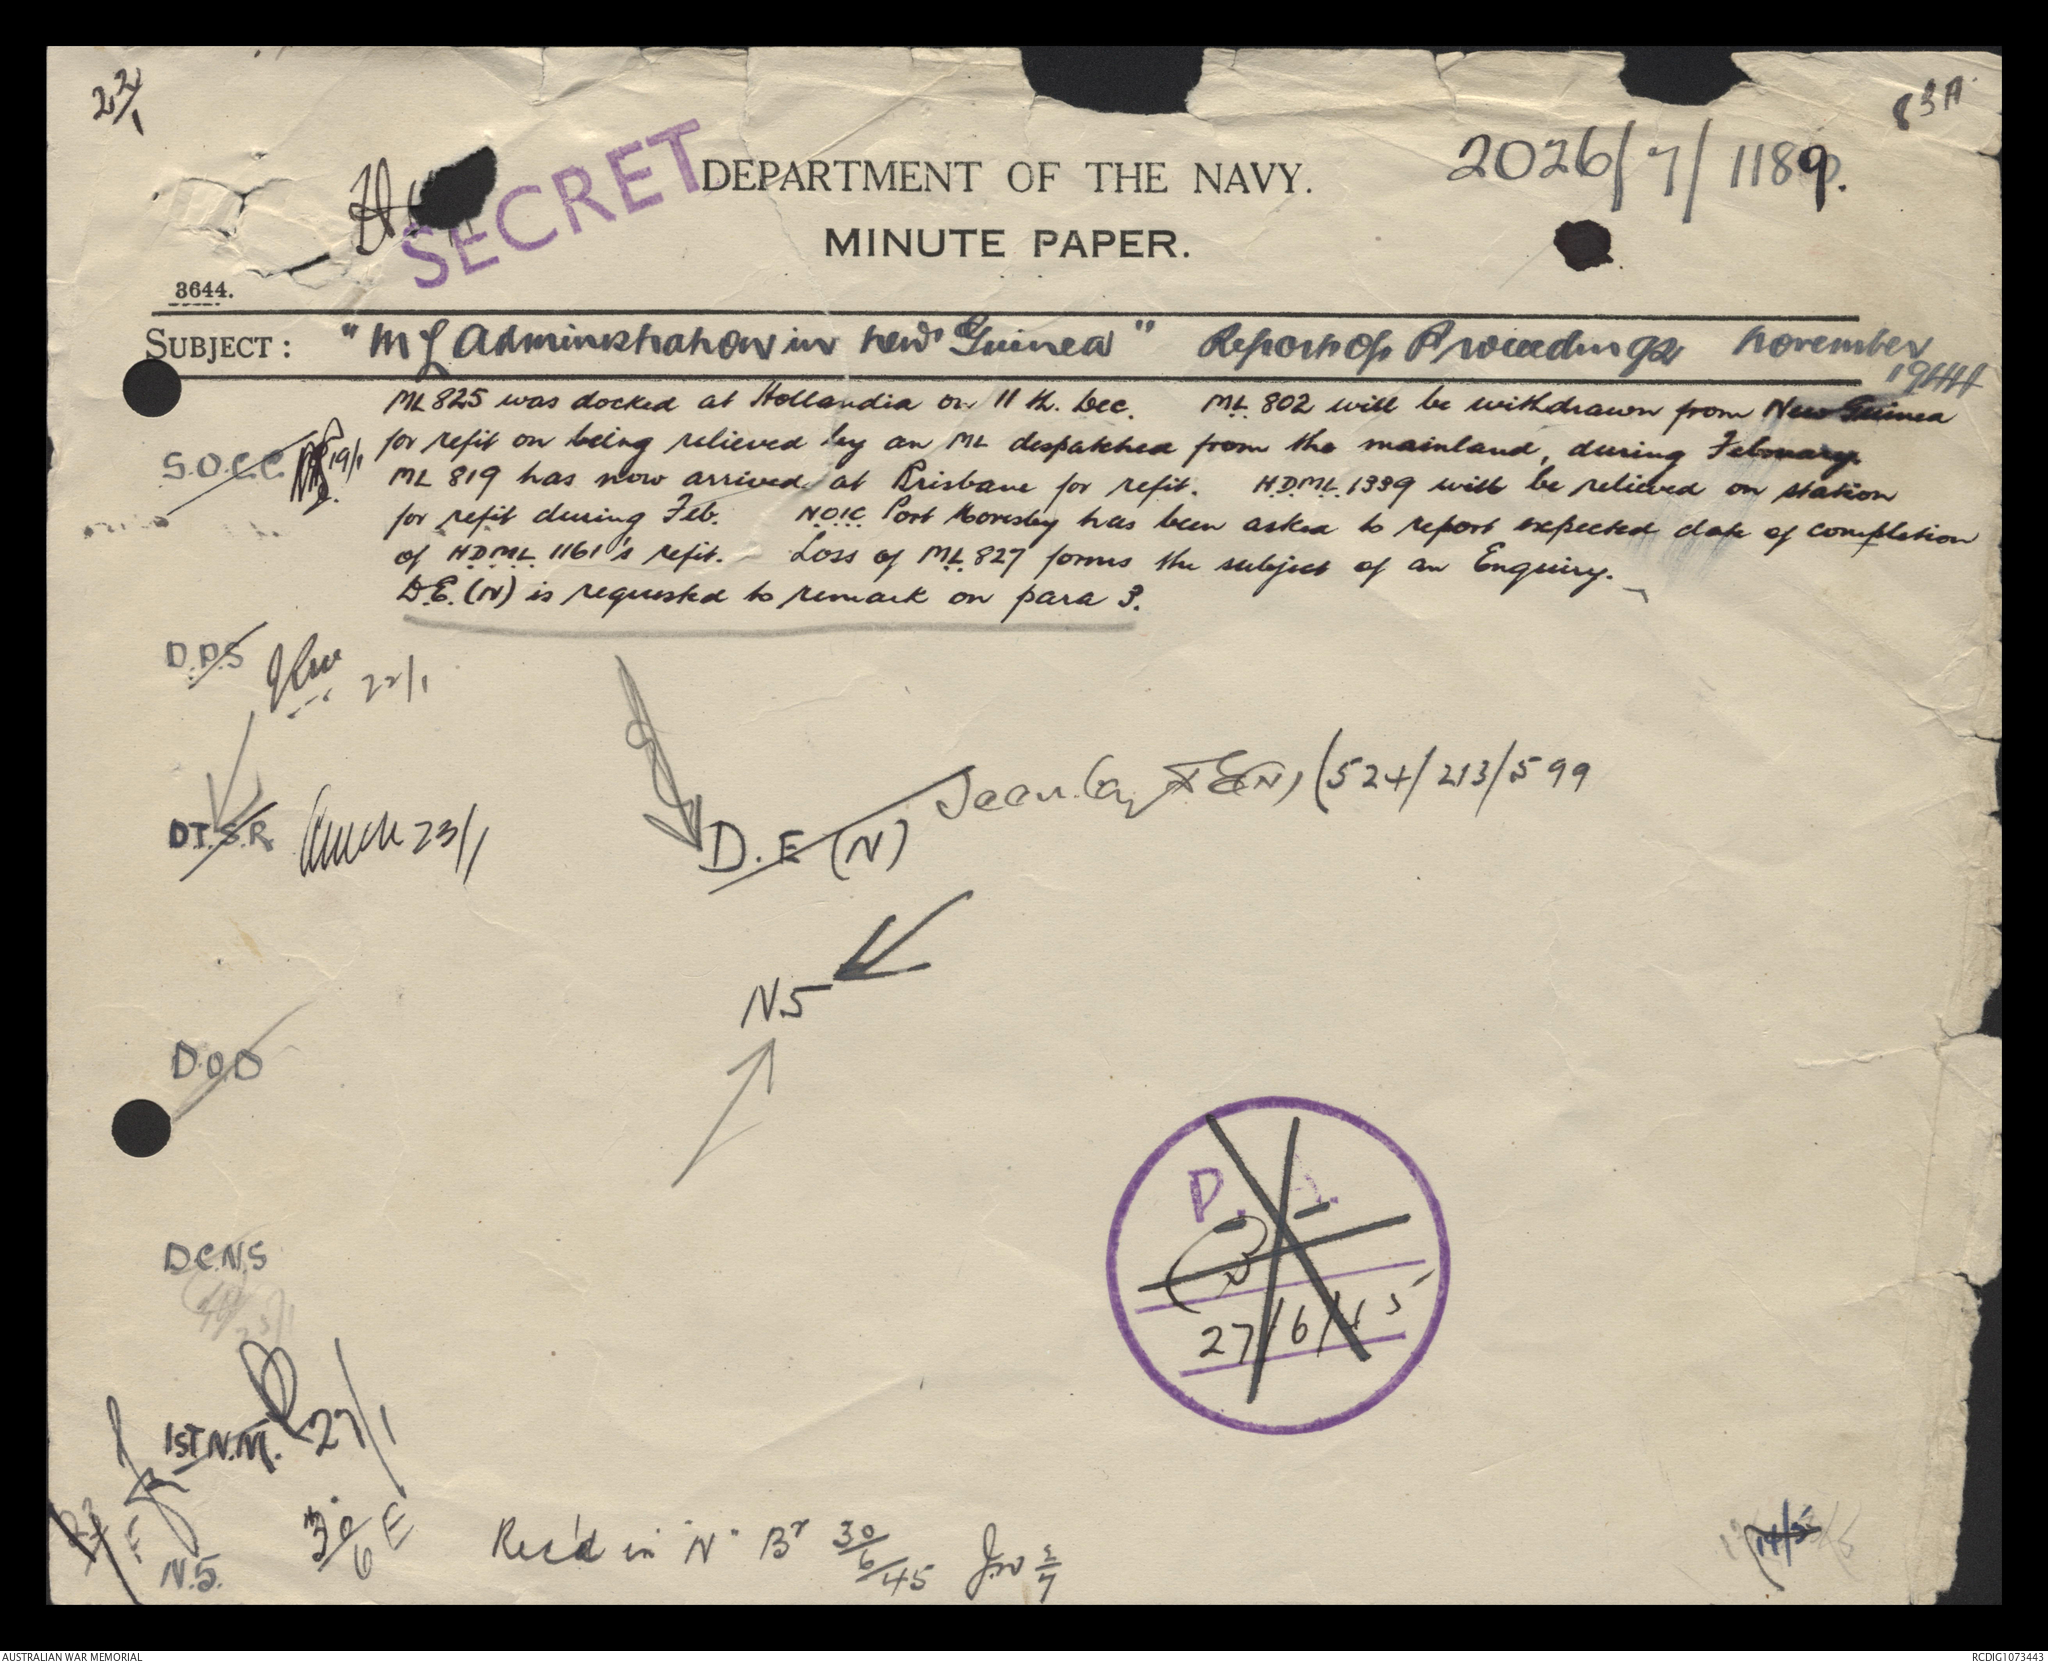 22/1
83A
SECRET
DEPARTMENT OF THE NAVY.
2026/7/1189.
MINUTE PAPER.
3644.
SUBJECT: "ML Administration in New Guinea" Report of Proceedings November 1944
ML 825 was docked at Hollandia on 11th. Dec. ML 802 will be withdrawn from New Guinea
for refit on being relieved by an ML despatched from the mainland, during February.
ML 819 has now arrived at Brisbane for refit. H.D.M.L. 1339 will be relieved on station
for refit during Feb. N.O.I.C. Port Moresby has been asked to report expected date of completion
of H.D.M.L. 1161's refit. Loss of ML 827 forms the subject of an Enquiry.
D.E.(N) is requested to remark on para 3.
S.O.C.C. 19/1
D.P.S 22/1
D.T.S.R 23/1
D.E (N) Seen by (524/213/599
N5
D.O.D
D.C.N.S
P.
27/6/45
1ST N.M. 27/1
N.5.
30/6 E
Rec'd in "N" Br 30/6/45 2/7
AUSTRALIAN WAR MEMORIAL
RCDIG1073443